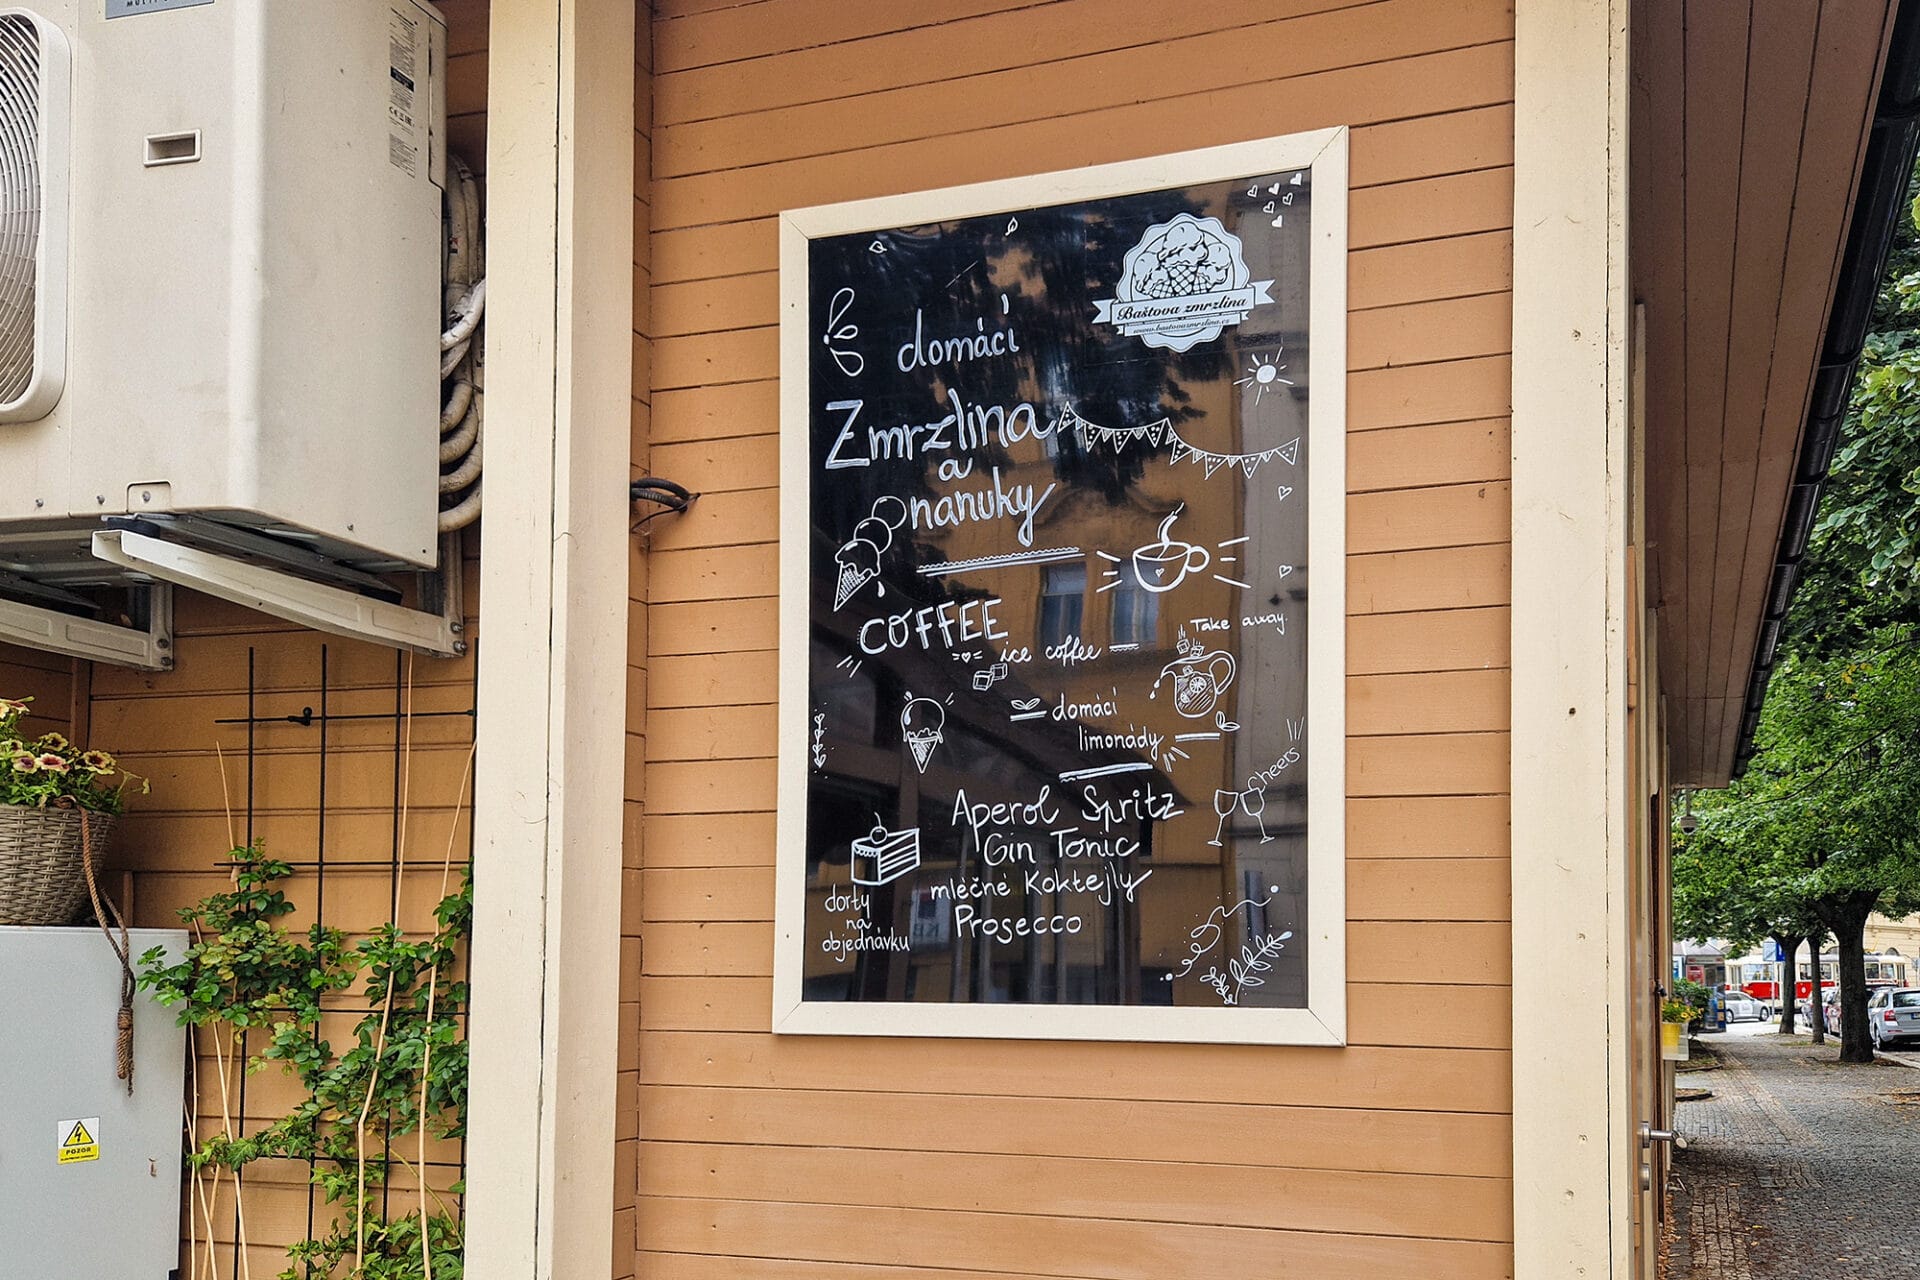 Baštova zmrzlina
www.bastovazmrzlina.cz
domácí
Zmrzlina
a
nanuky
COFFEE
ice coffee
Take away
domácí
limonády
Cheers
Aperol Spritz
Gin Tonic
mléčné Koktejly
Prosecco
dorty
na
objednávku
POZOR